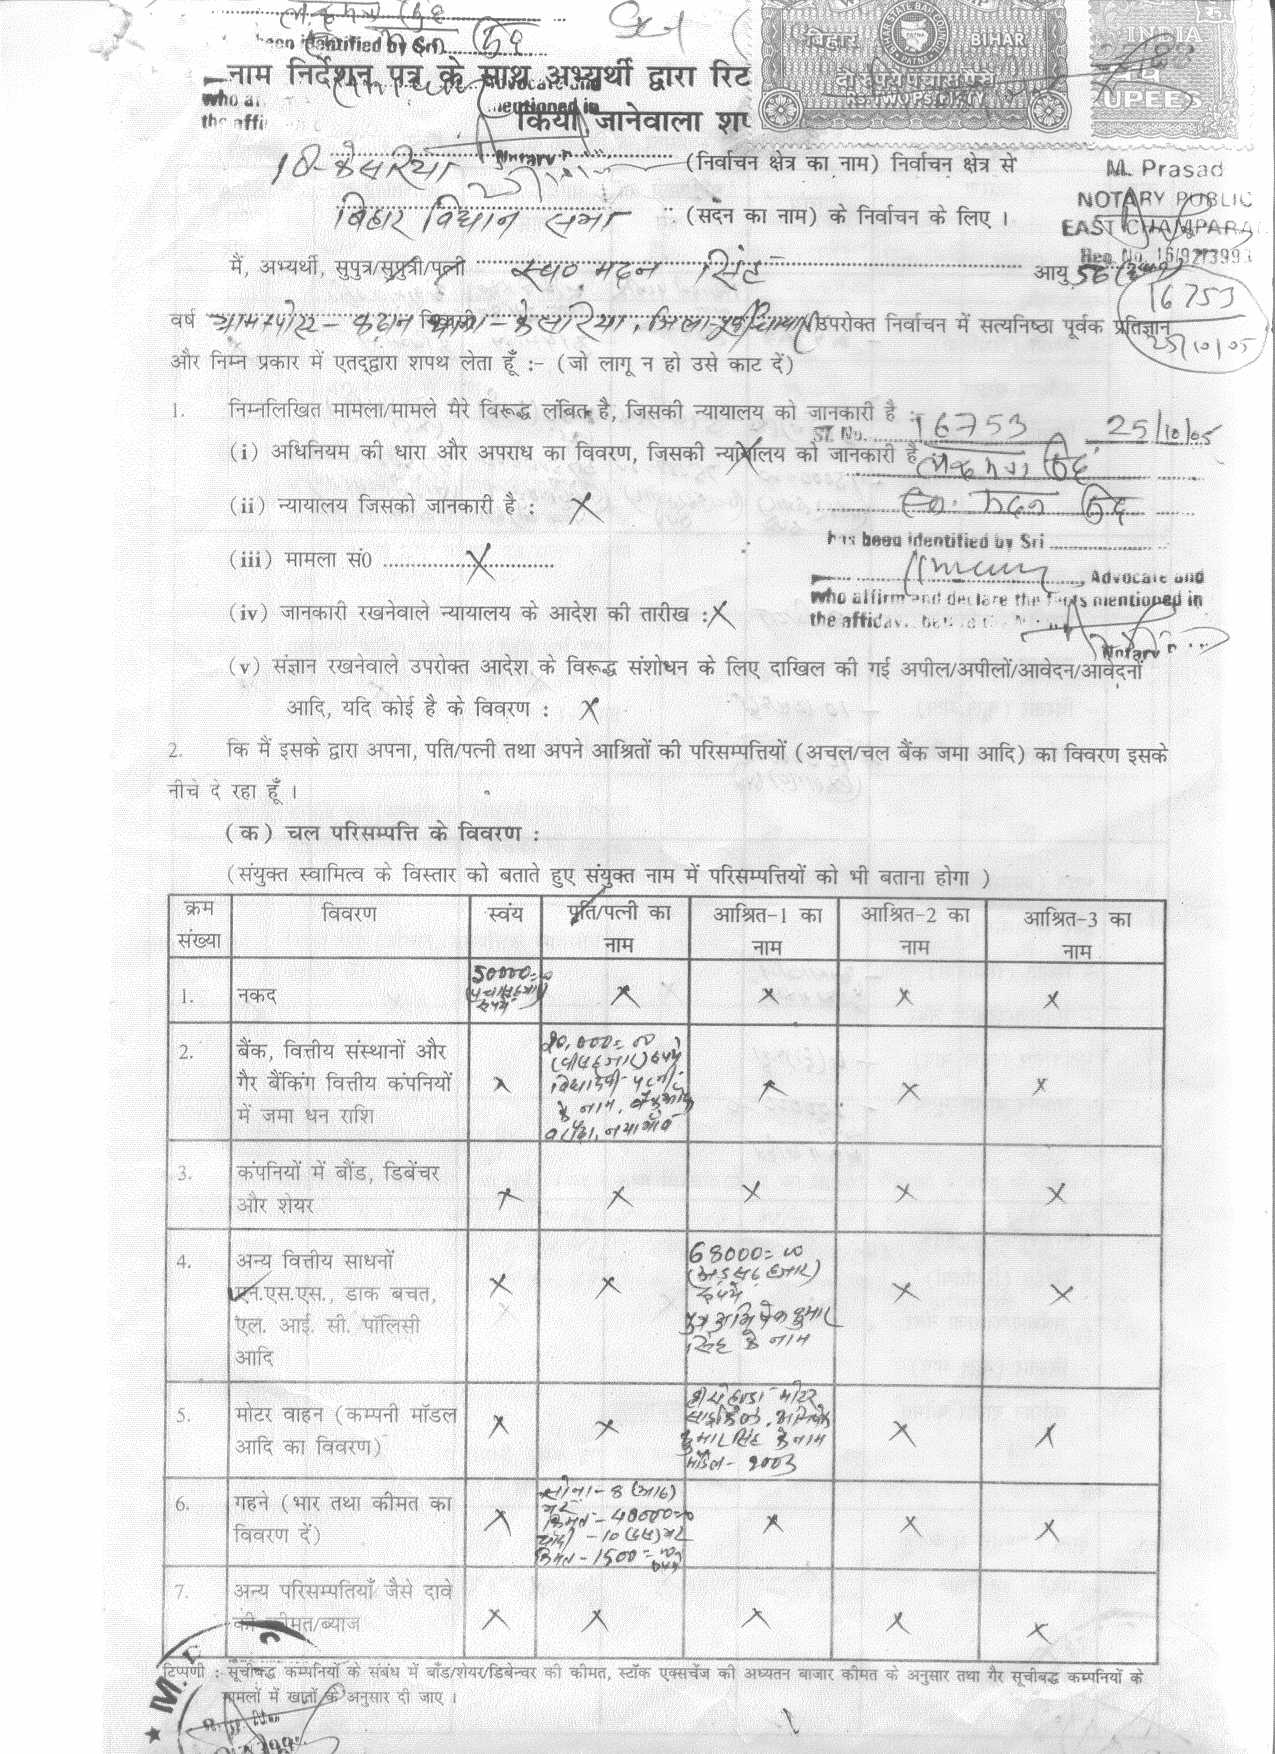 been identified by Sri
Advocate and
who
mentioned in
the
बिहार BIHAR
BIHAR STATE BAR COUNCIL
दो रुपये पचास पैसे
RS. TWO PS. FIFTY
INDIA
RUPEES
नाम निर्देशन पत्र के साथ अभ्यर्थी द्वारा
किया जानेवाला
Notary
16-केसरिया (निर्वाचन क्षेत्र का नाम) निर्वाचन क्षेत्र से
बिहार विधान सभा (सदन का नाम) के निर्वाचन के लिए ।
M. Prasad
NOTARY PUBLIC
EAST CHAMPARAN
Reg. No. 16/92/3993
मैं, अभ्यर्थी, सुपुत्र/सुपुत्री/पत्नी स्व० मदन सिंह आयु 56
16753
25/10/05
वर्ष ग्राम+पोस्ट- थाना- केसरिया, जिला- उपरोक्त निर्वाचन में सत्यनिष्ठा पूर्वक प्रतिज्ञान
और निम्न प्रकार में एतद्द्वारा शपथ लेता हूँ :- (जो लागू न हो उसे काट दें)
1. निम्नलिखित मामला/मामले मेरे विरूद्ध लंबित है, जिसकी न्यायालय को जानकारी है :
Sl. No. 16753 25/10/05
(i) अधिनियम की धारा और अपराध का विवरण, जिसकी न्यायालय को जानकारी है
(ii) न्यायालय जिसको जानकारी है : X
स्व. मदन सिंह
has been identified by Sri
(iii) मामला सं0 X
Advocate and
who affirm and declare the facts mentioned in
the affidavit
(iv) जानकारी रखनेवाले न्यायालय के आदेश की तारीख : X
Notary
(v) संज्ञान रखनेवाले उपरोक्त आदेश के विरूद्ध संशोधन के लिए दाखिल की गई अपील/अपीलों/आवेदन/आवेदनों
आदि, यदि कोई है के विवरण : X
2. कि मैं इसके द्वारा अपना, पति/पत्नी तथा अपने आश्रितों की परिसम्पत्तियों (अचल/चल बैंक जमा आदि) का विवरण इसके
नीचे दे रहा हूँ ।
(क) चल परिसम्पत्ति के विवरण :
(संयुक्त स्वामित्व के विस्तार को बताते हुए संयुक्त नाम में परिसम्पत्तियों को भी बताना होगा )
क्रम संख्या विवरण स्वंय पति/पत्नी का नाम आश्रित-1 का नाम आश्रित-2 का नाम आश्रित-3 का नाम
1. नकद 50000=00 (पचास हजार) रुपये X X X X
2. बैंक, वित्तीय संस्थानों और
गैर बैंकिंग वित्तीय कंपनियों
में जमा धन राशि
X
20,000=00
(बीस हजार) रुपये
विद्या देवी- पत्नी
के नाम,
X X X
3. कंपनियों में बौंड, डिबेंचर
और शेयर
X X X X X
4. अन्य वित्तीय साधनों
एन.एस.एस., डाक बचत,
एल. आई. सी. पॉलिसी
आदि
X X
68000=00
(अड़सठ हजार)
रुपये
पुत्र अभिषेक कुमार
सिंह के नाम
X X
5. मोटर वाहन (कम्पनी मॉडल
आदि का विवरण)
X X
हीरो होण्डा मोटर
साईकिल, अभिषेक
कुमार सिंह के नाम
मॉडल- 2003
X X
6. गहने (भार तथा कीमत का
विवरण दें)
X
सोना-8 (आठ)
भर
किमत-40000=00
चाँदी -10 (दस) भर
किमत-1500=00
रुपये
X X X
7. अन्य परिसम्पतियाँ जैसे दावे
की कीमत/ब्याज
X X X X X
टिप्पणी : सूचीबद्ध कम्पनियों के संबंध में बाँड/शेयर/डिबेन्चर की कीमत, स्टॉक एक्सचेंज की अध्यतन बाजार कीमत के अनुसार तथा गैर सूचीबद्ध कम्पनियों के
मामलों में खातों के अनुसार दी जाए ।